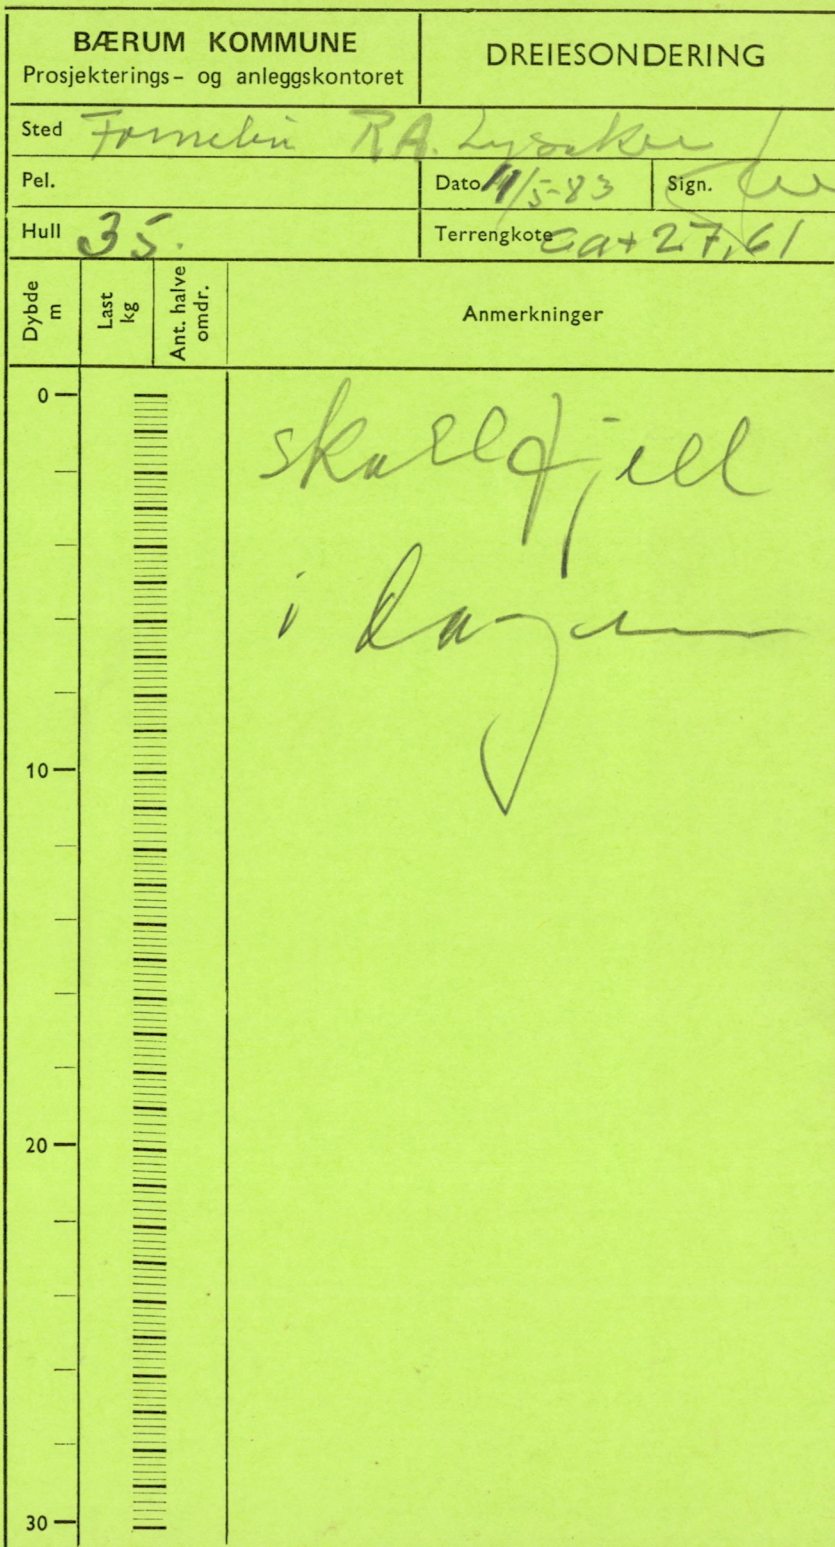 BÆRUM KOMMUNE
Prosjekterings- og anleggskontoret
DREIESONDERING
Sted R.A. Lysaker
Pel.
Dato 11/5-83
Sign.
Hull 35.
Terrengkote ca + 27,61
Dybde m
Last kg
Ant. halve omdr.
Anmerkninger
0
skallfjell
i dagen
10
20
30